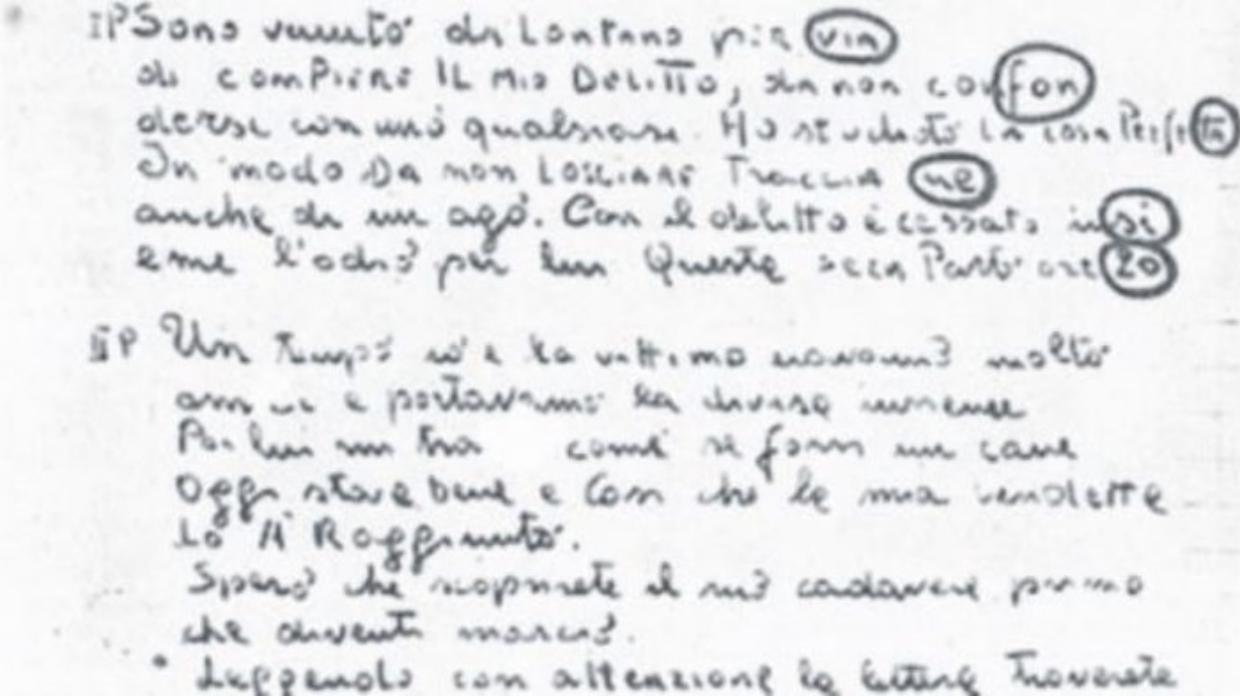 IP Sono venuto da Lontano per via
di compiere IL Mio DELITTO, da non confon
dersi con uno qualsiasi. Ho studiato la cosa Perfetta
In modo Da non LASCIARE Traccia ne
anche di un ago. Con il delitto è cessato insi
eme l'odio per lui Questa sera Partirò ore 20
II P Un Tempo io e la vittima eravamo molto
amici e portavamo la divisa insieme
Poi lui mi come se fossi un cane
Oggi stava bene e Così che la mia vendetta
Lo A Raggiunto.
Spero che scoprirete il suo cadavere primo
che diventi marcio.
Leggendo con attenzione la lettera Troverete